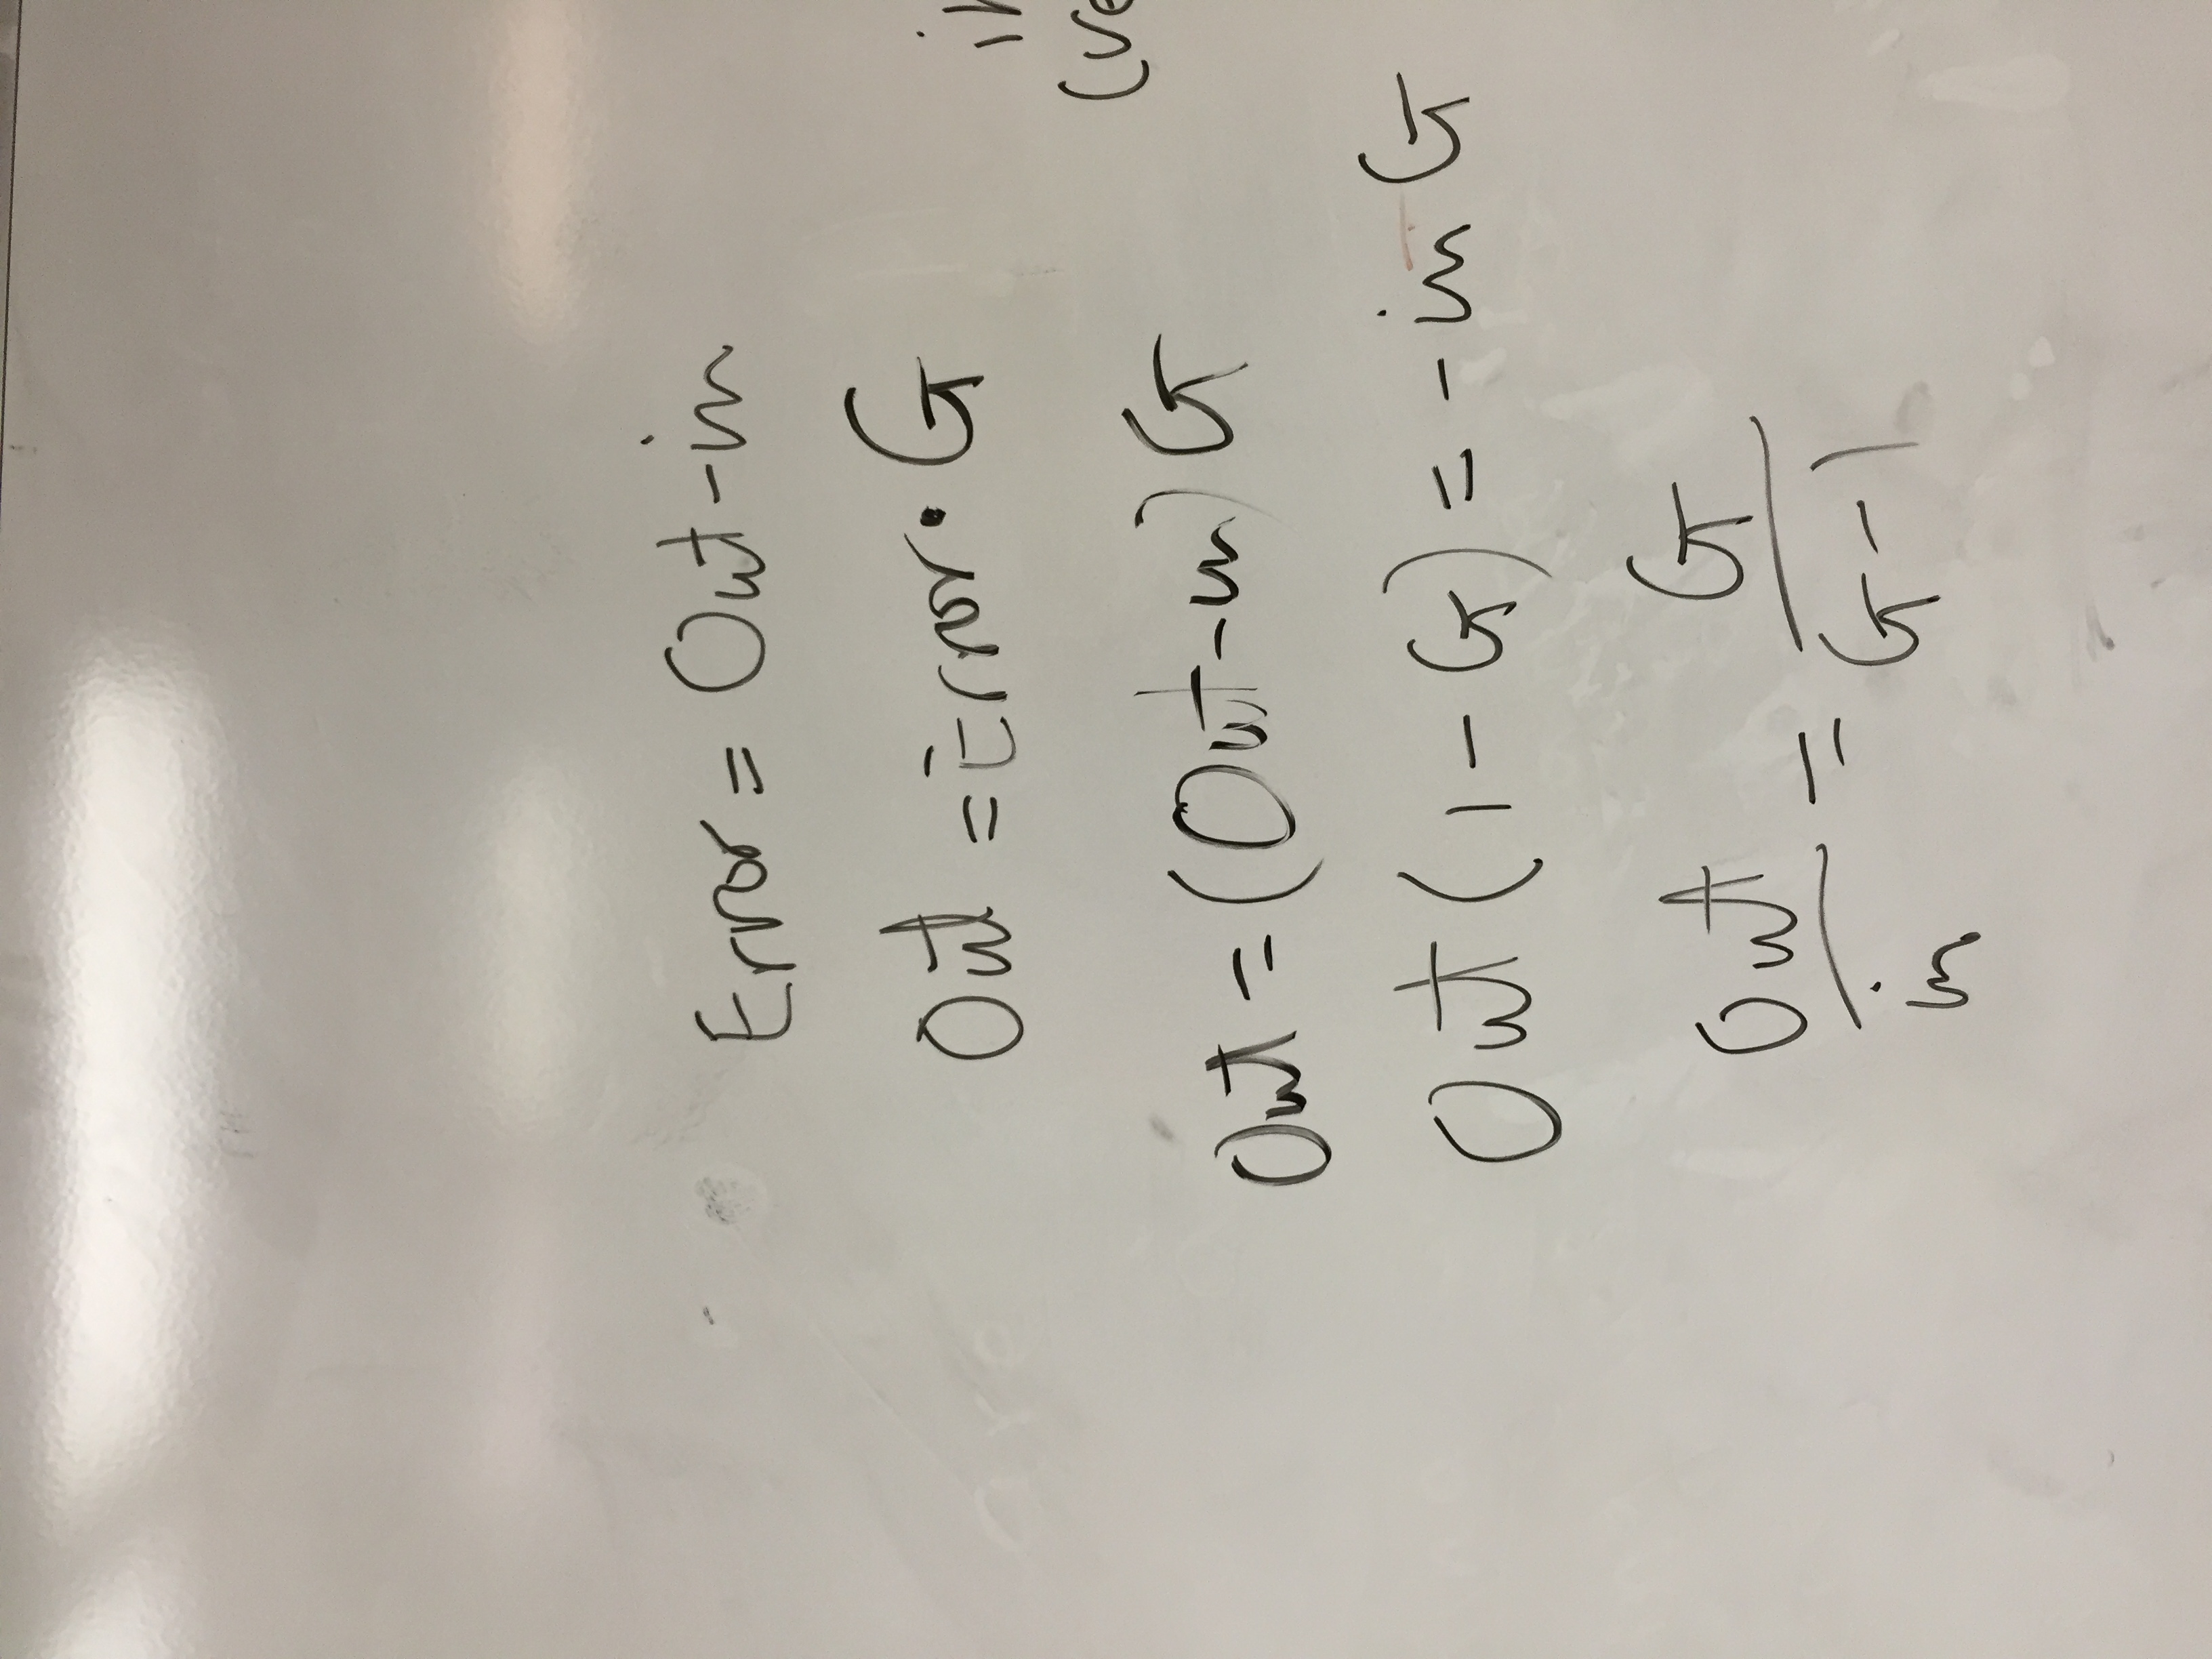 Error = Out - in
Out = Error · G
Out = (Out - in) G
Out (1 - G) = - in G
Out / in = G / G - 1